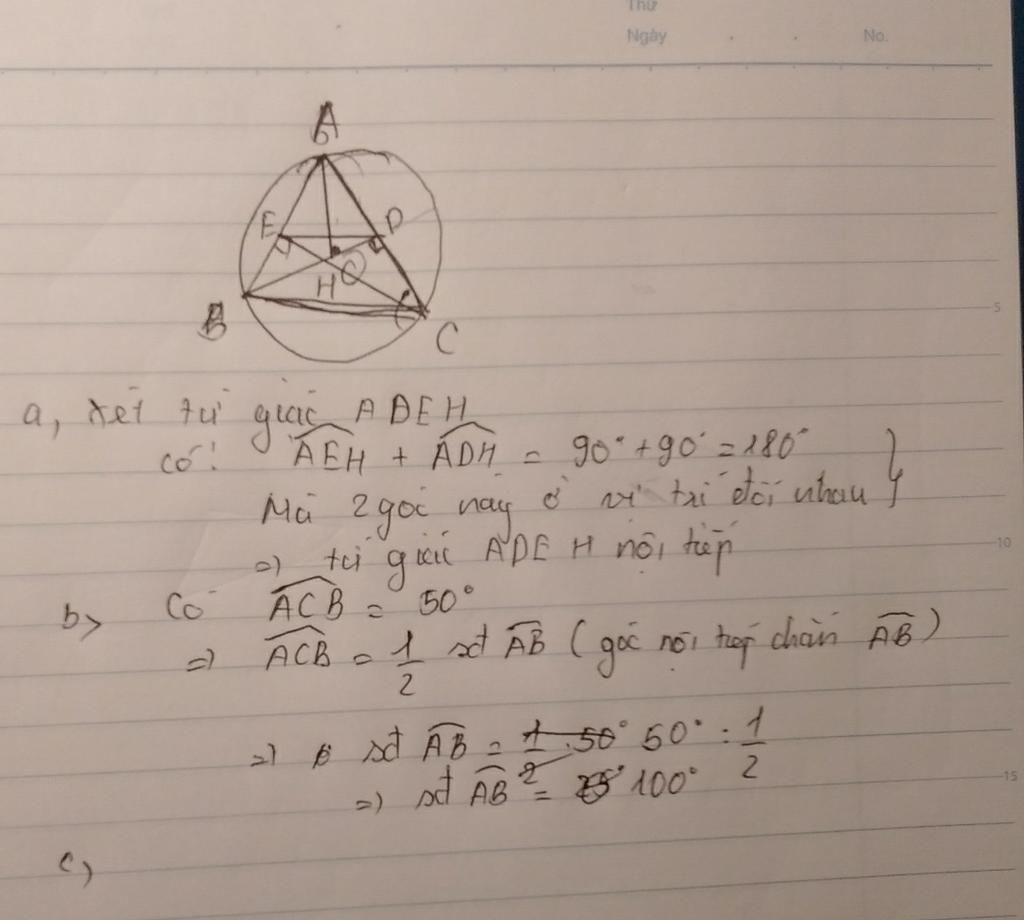 Thứ
Ngày . . No.
A
E D
H O
B
C
5
a, xét tứ giác ADEH
có: AEH + ADH = 90° + 90° = 180°
Mà 2 góc này ở vị trí đối nhau
=) tứ giác ADEH nội tiếp
10
b> Có ACB = 50°
=) ACB = 1/2 sđ AB (góc nội tiếp chắn AB)
=) sđ AB = 50° : 1/2
=) sđ AB = 100°
15
c,